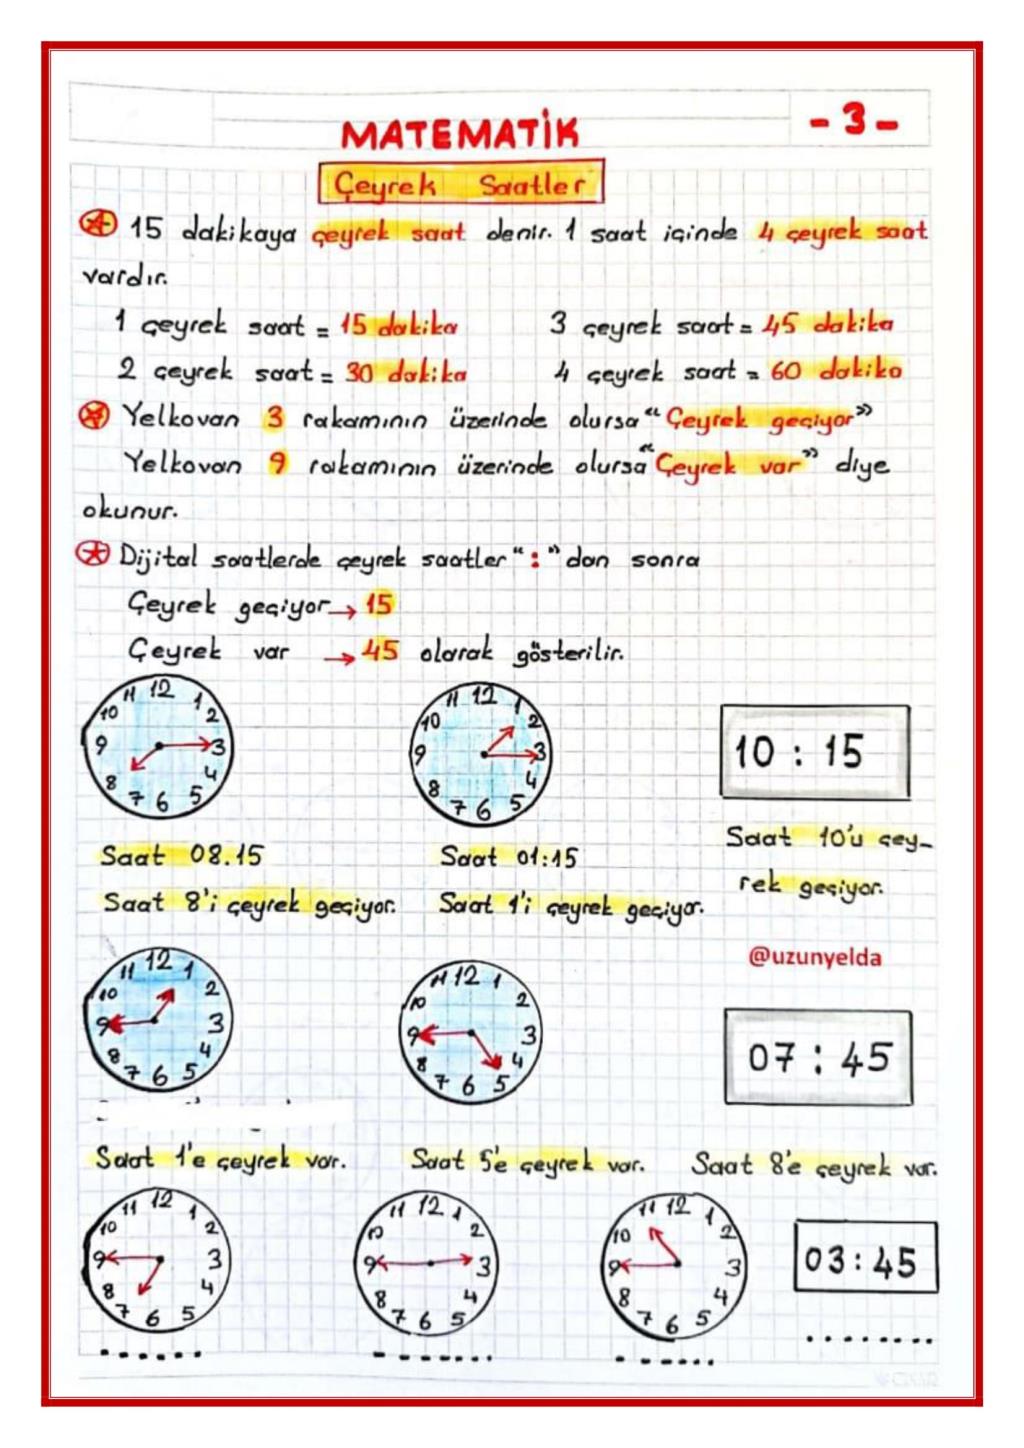 MATEMATİK
- 3 -
Çeyrek Saatler
15 dakikaya çeyrek saat denir. 1 saat içinde 4 çeyrek saat
vardır.
1 çeyrek saat = 15 dakika 3 çeyrek saat = 45 dakika
2 çeyrek saat = 30 dakika 4 çeyrek saat = 60 dakika
Yelkovan 3 rakamının üzerinde olursa "Çeyrek geçiyor"
Yelkovan 9 rakamının üzerinde olursa "Çeyrek var" diye
okunur.
Dijital saatlerde çeyrek saatler ":" dan sonra
Çeyrek geçiyor → 15
Çeyrek var → 45 olarak gösterilir.
12 1 2 3 4 5 6 7 8 9 10 11
12 1 2 3 4 5 6 7 8 9 10 11
10 : 15
Saat 08.15
Saat 8'i çeyrek geçiyor.
Saat 01:15
Saat 1'i çeyrek geçiyor.
Saat 10'u çey-
rek geçiyor.
@uzunyelda
12 1 2 3 4 5 6 7 8 9 10 11
12 1 2 3 4 5 6 7 8 9 10 11
07 : 45
Saat 1'e çeyrek var.
Saat 5'e çeyrek var.
Saat 8'e çeyrek var.
12 1 2 3 4 5 6 7 8 9 10 11
12 1 2 3 4 5 6 7 8 9 10 11
12 1 2 3 4 5 6 7 8 9 10 11
03:45